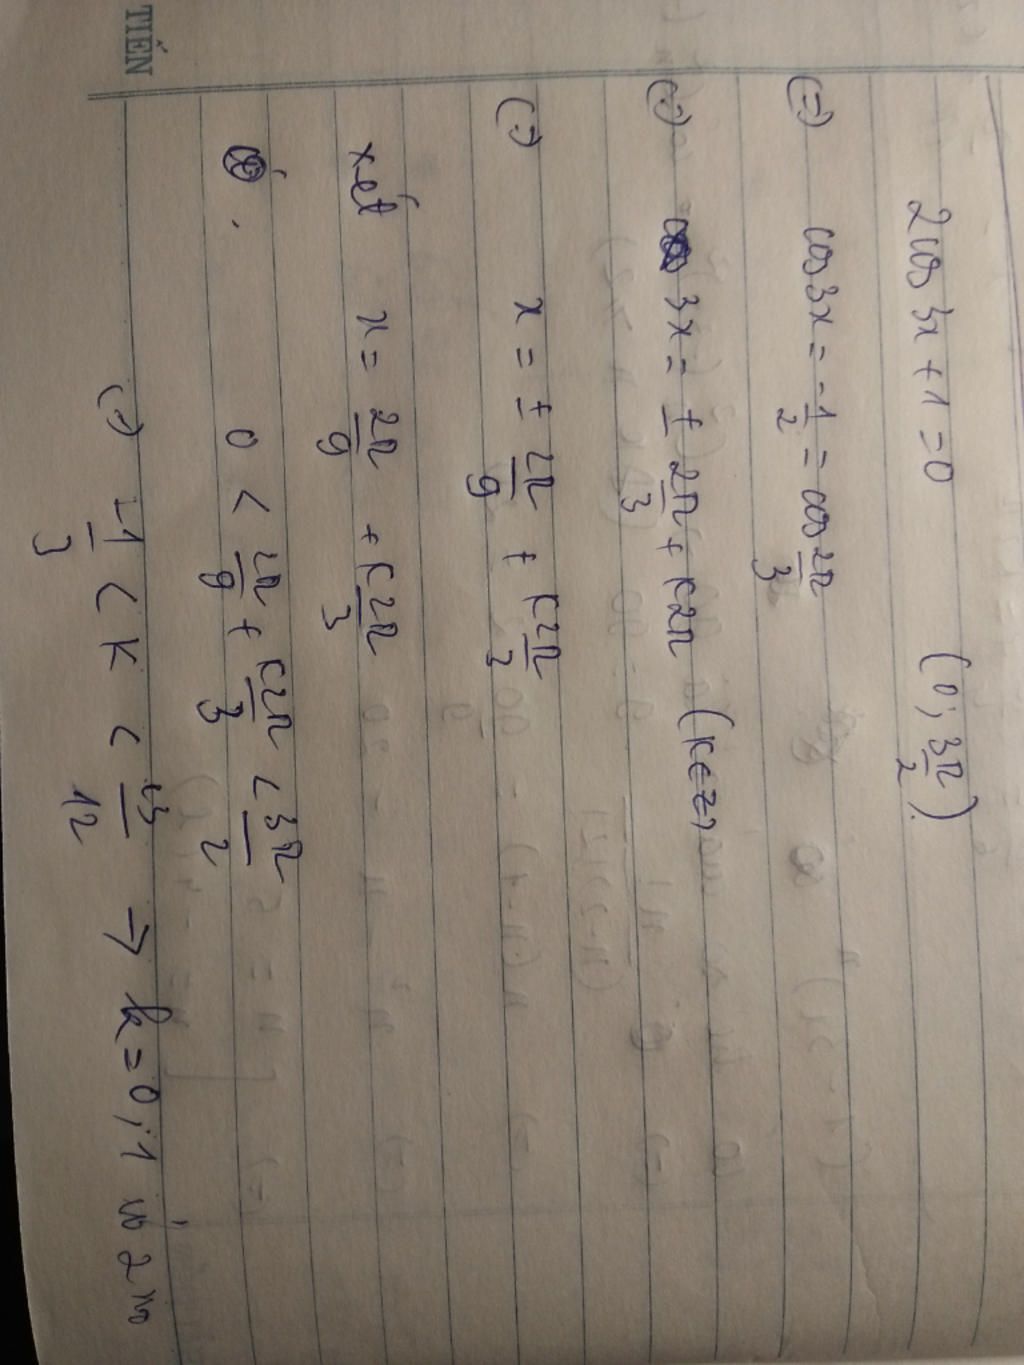 TIẾN
2cos 3x + 1 = 0 (0; 3π/2).
(=) cos 3x = -1/2 = cos 2π/3
(=) 3x = ± 2π/3 + K2π (K∈Z)
(=) x = ± 2π/9 + K2π/3
xét x = 2π/9 + K2π/3
0 < 2π/9 + K2π/3 < 3π/2
(=) -1/3 < K < 23/12 → k = 0; 1 có 2 no